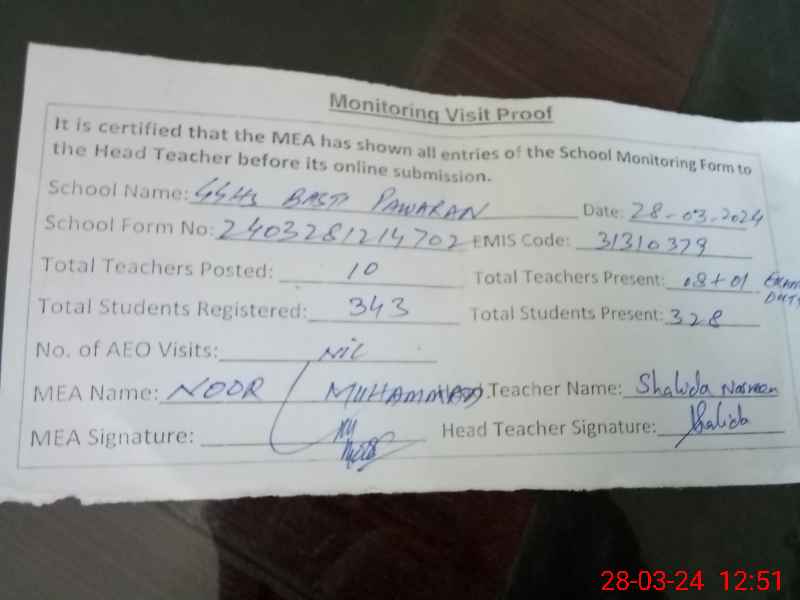 Monitoring Visit Proof
It is certified that the MEA has shown all entries of the School Monitoring Form to
the Head Teacher before its online submission.
School Name: GGHS BASTI PAWARAN Date: 28-03-2024
School Form No: 2403281214702 EMIS Code: 31310379
Total Teachers Posted: 10 Total Teachers Present: 08+01 EXAM DUTY
Total Students Registered: 343 Total Students Present: 328
No. of AEO Visits: NIL
MEA Name: NOOR MUHAMMAD Teacher Name: Shahida Nasreen
MEA Signature: Head Teacher Signature: Shahida
28-03-24 12:51